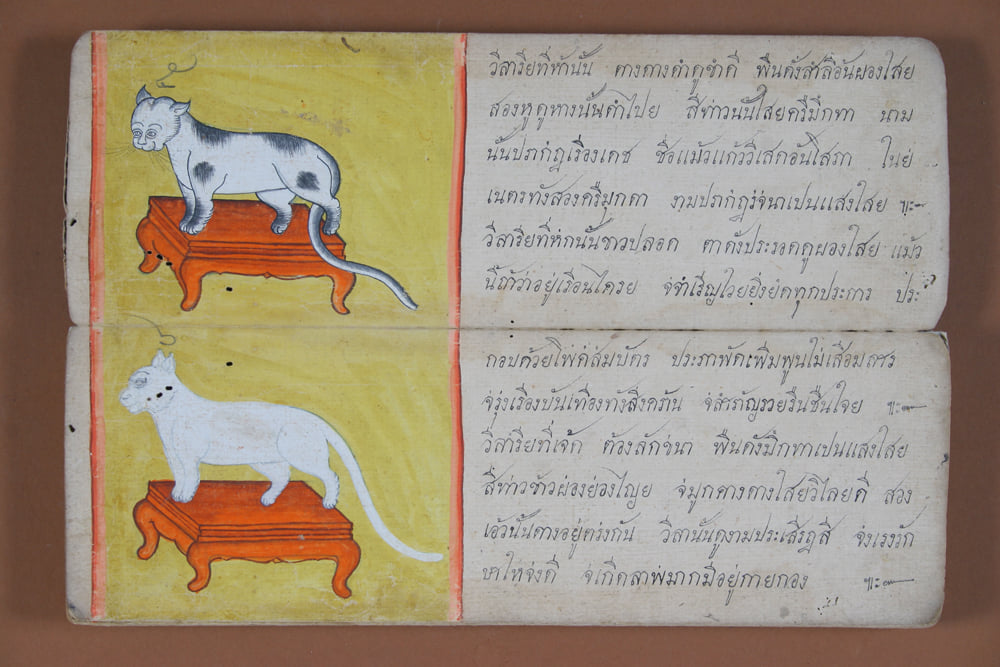 ๕
วิสาริยที่ห้านั้น คางคางดำดูขำดี พื้นดังสำลีอันผองใสย
สองหูดูหางนั้นดำไปย สีท้าวนั้นใสยครืมึกทา นาม
นั้นปรากฏเรืองเดช ชื่อแม้วแก้ววิเสดอันโสภา ในย่
เนตรทังสองครืมุกดา งามปรากฏรจนาเปนแสงใสย ๚ะ๛
วิสาริยที่หกนั้นขาวปลอด ตาดังประรอดดูผองใสย แม้ว
นี้ถ้าว่าอยู่เรือนใครย จจำเริญไวยยิ่งยดทุกประการ ประ
๖
กอบด้วยโพคสมบัตร ประภาพัดเพิ่มพูนไม่เสื่อมสาร
จรุ่งเรืองบันเทืองทังสิงคร้าน จสำรานรวยรืนชืนใจย ๚ะ๛
วิสาริยที่เจ้ด ต้องลักขนา พื้นดังมึกทาเปนแสงใสย
สีท้าวขาวผ่องย่องไญย จมูกคางคางใสยวิไลยดี สอง
เอวนั้นด่างอยู่ตรงกัน วิลานั้นดูงามประเสีรฏสี จงเรงรัก
ษาให้จงดี จเกิดลาพมากมีอยู่กายกอง ๚ะ๛